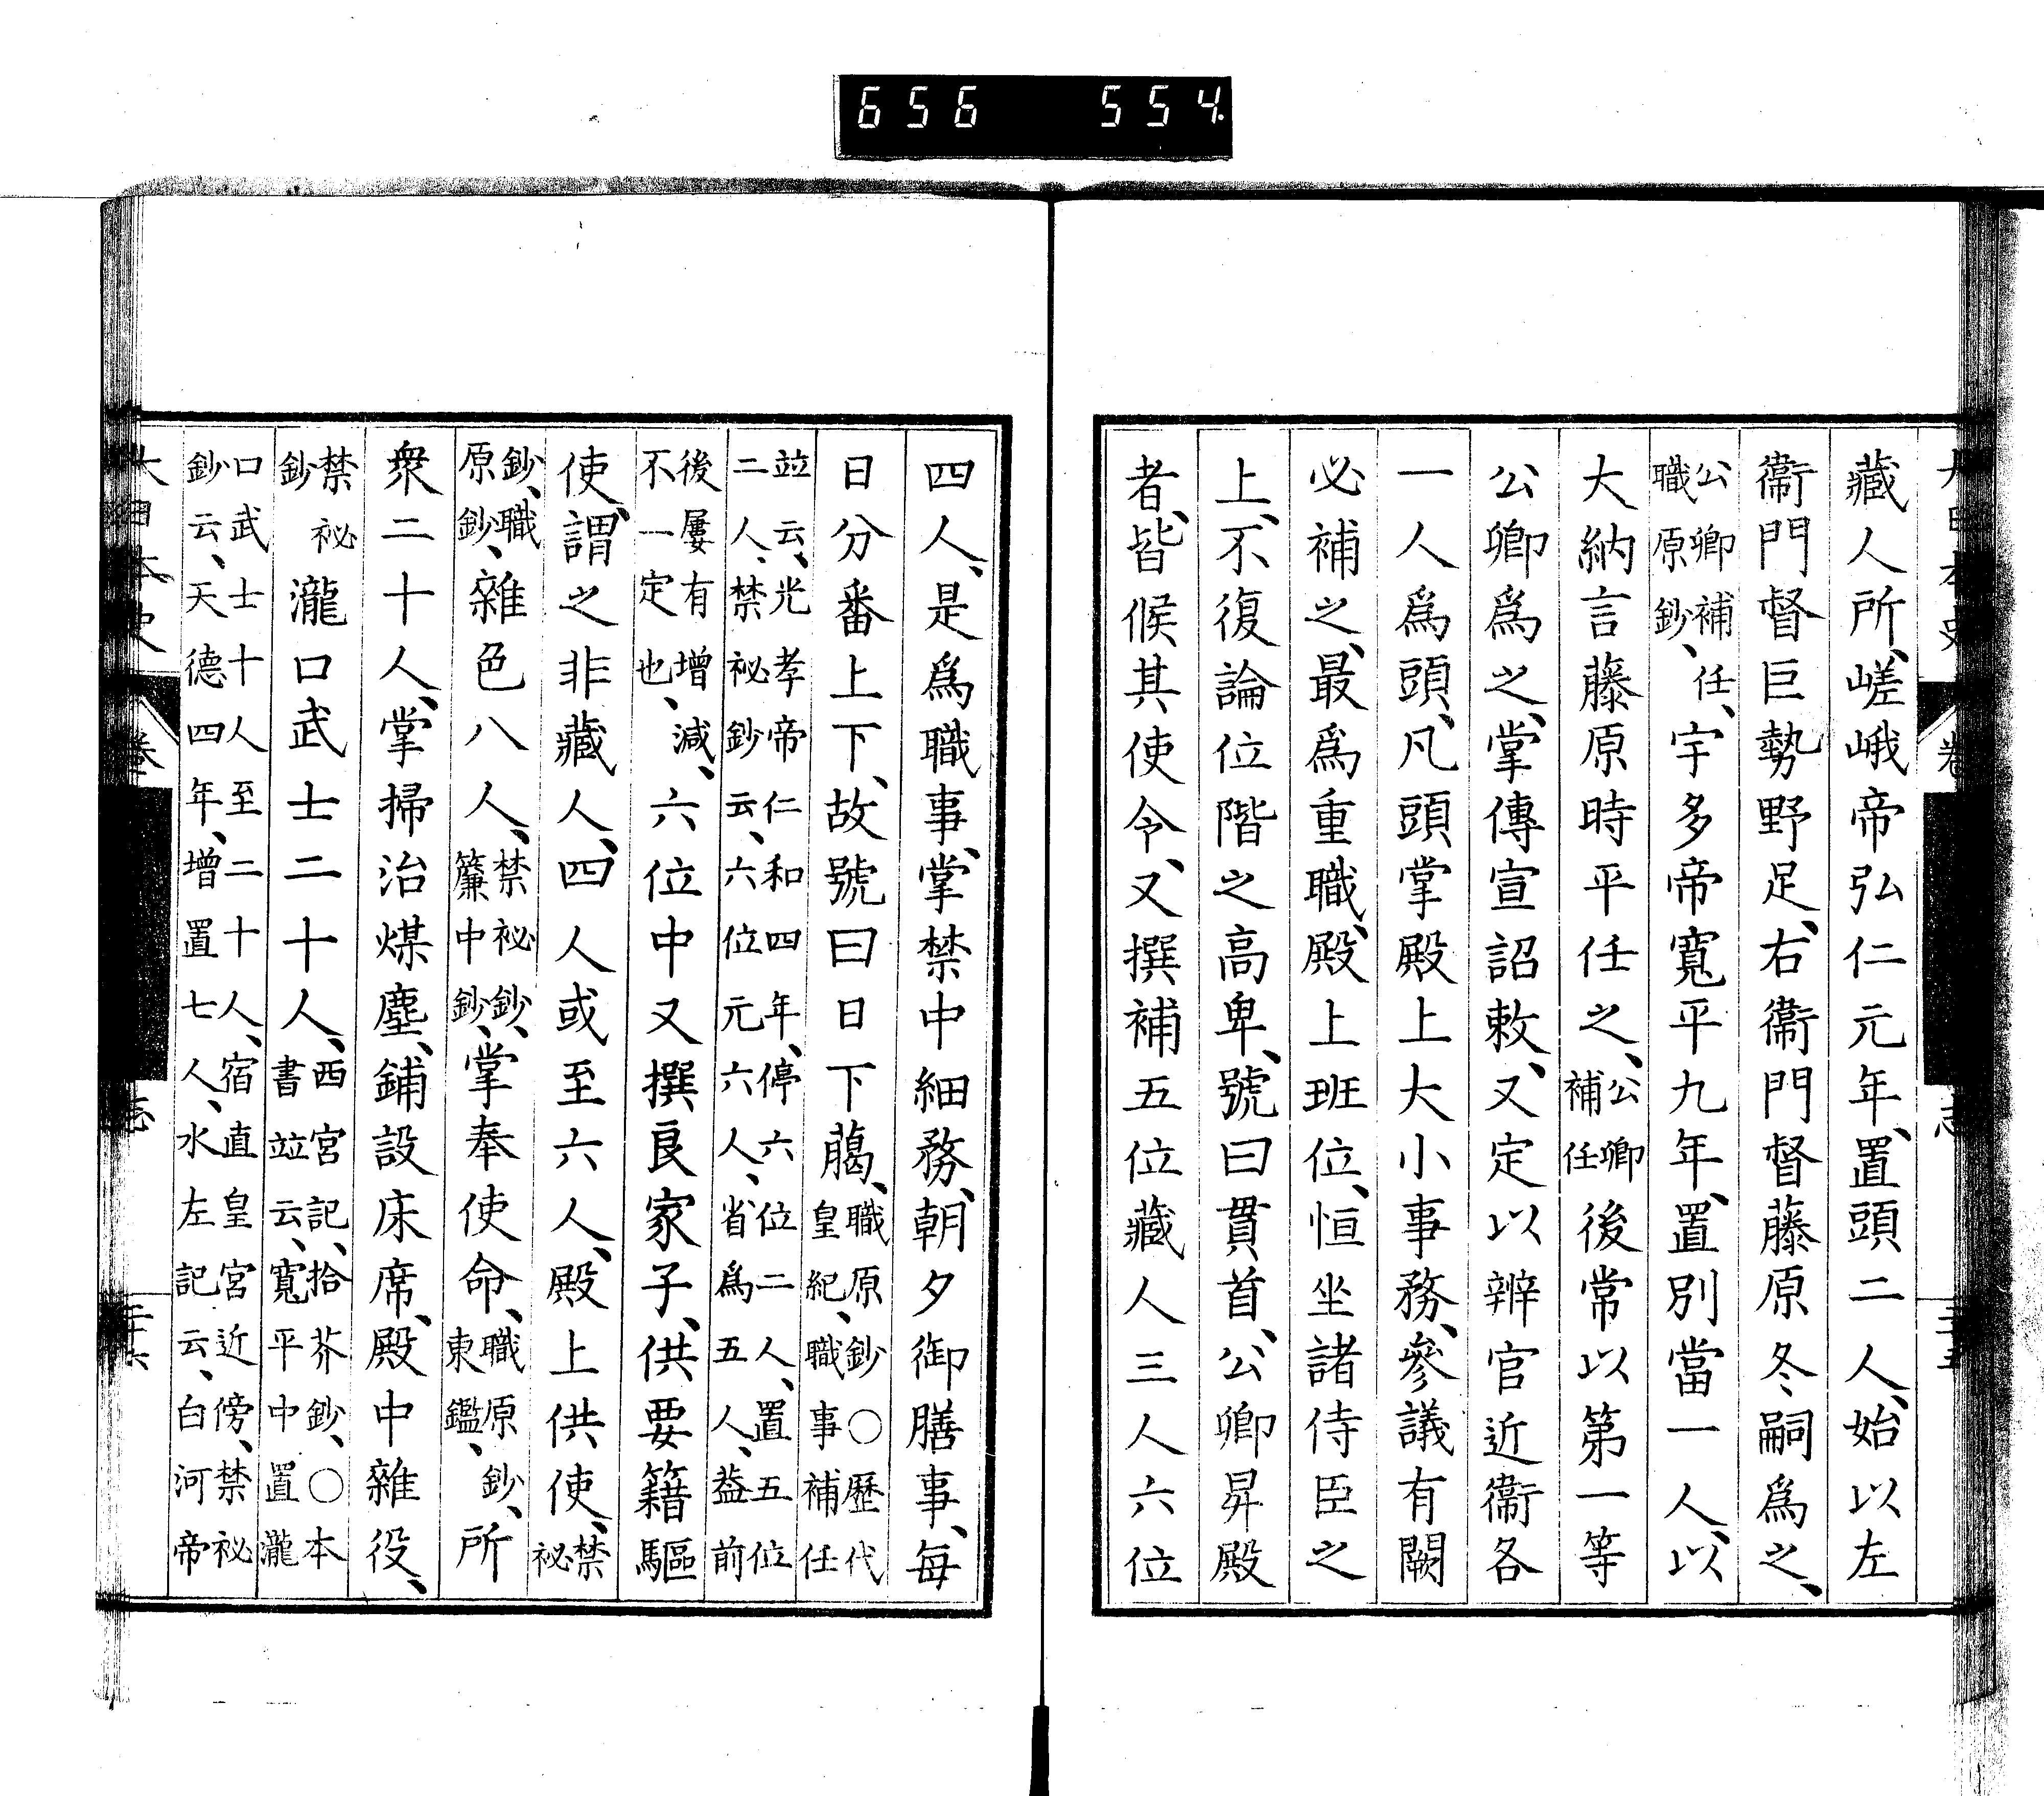 656 554.
藏人所、嵯峨帝弘仁元年、置頭二人、始以左
衞門督巨勢野足、右衞門督藤原冬嗣爲之、
公卿補任、職原鈔、宇多帝寬平九年、置別當一人、以
大納言藤原時平任之、公卿補任後常以第一等
公卿爲之、掌傳宣詔敕、又定以辨官近衞各
一人爲頭、凡頭掌殿上大小事務、參議有闕
必補之、最爲重職、殿上班位、恒坐諸侍臣之
上、不復論位階之高卑、號曰貫首、公卿昇殿
者、皆候其使令、又撰補五位藏人三人六位
四人、是爲職事、掌禁中細務、朝夕御膳事、每
日分番上下、故號曰日下﨟、職原鈔○歷代皇紀、職事補任
竝云、光孝帝仁和四年、停六位二人、置五位二人、禁祕鈔云、六位元六人、省爲五人、益前
後屢有增減、不一定也、六位中又撰良家子、供要籍驅
使、謂之非藏人、四人或至六人、殿上供使、禁祕
鈔、職原鈔、雜色八人、禁祕鈔、簾中鈔、掌奉使命、職原鈔、東鑑、所
衆二十人、掌掃治煤塵、鋪設床席、殿中雜役、
禁祕鈔瀧口武士二十人、西宮記、拾芥鈔、○本書竝云、寬平中置瀧
口武士十人至二十人、宿直皇宮近傍、禁祕鈔云、天德四年、增置七人、水左記云、白河帝
大日本史 卷 志 二十六